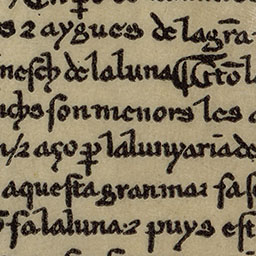 s ⁊ aygues de la grã
nesch de la luna
uchs son menors les
⁊ aço ꝑ la lunyaria de
aquesta gran mar fa s
fa la luna: ⁊ puys est